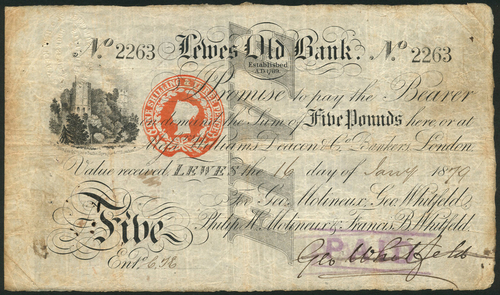 No 2263 Lewes Old Bank. No 2263
Established
A.D. 1789.
Promise to pay the Bearer
on demand the Sum of Five Pounds here or at
Messrs Williams Deacon & Co. Bankers London
Value received, LEWES the 6 day of Jany 1879
For Geo. Molineux, Geo. Whitfeld,
Philip H. Molineux & Francis B. Whitfeld.
Five
Entd
Geo Whitfeld